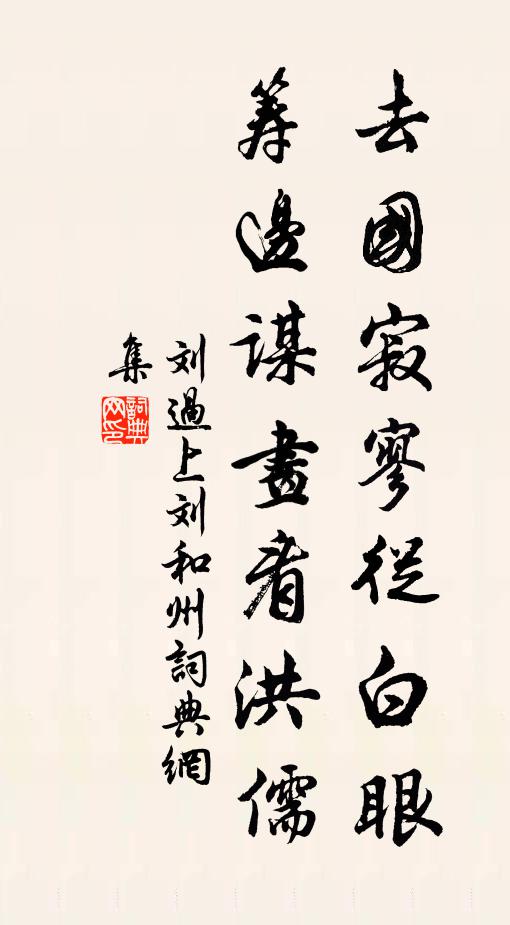 去國寂寥從白眼
籌邊謀畫看洪儒
刘過上刘和州詞典網
集
詞典网印